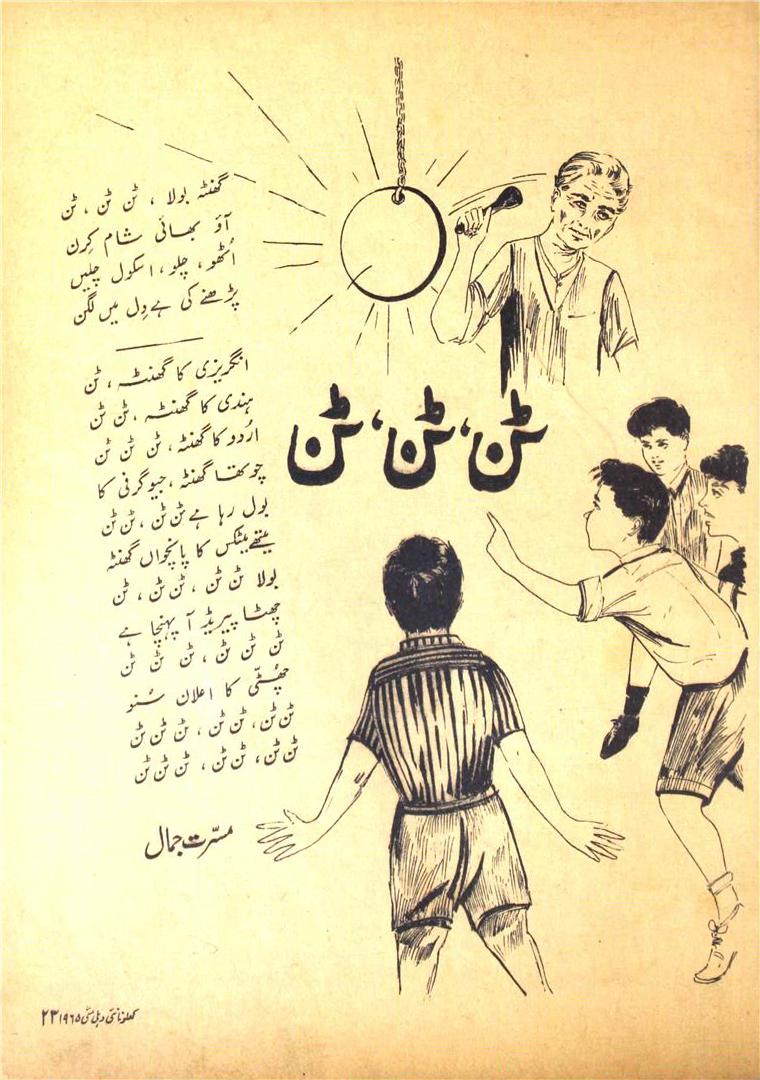 ٹن، ٹن، ٹن
گھنٹہ بولا ، ٹن ٹن ، ٹن
آؤ بھائی شام کِرن
اُٹھو ، چلو ، اسکول چلیں
پڑھنے کی ہے دِل میں لگن
انگریزی کا گھنٹہ ، ٹن
ہندی کا گھنٹہ ، ٹن ٹن
اردو کا گھنٹہ ، ٹن ٹن ٹن
چوتھا گھنٹہ ، جیوگرفی کا
بول رہا ہے ٹن ٹن ، ٹن ٹن
میتھے میٹکس کا پانچواں گھنٹہ
بولا ٹن ٹن ، ٹن ٹن ، ٹن
چھٹا پیریڈ آ پہنچا ہے
ٹن ٹن ٹن ، ٹن ٹن ٹن
چھُٹّی کا اعلان سُنو
ٹن ٹن، ٹن ٹن ، ٹن ٹن ٹن
ٹن ٹن، ٹن ٹن ، ٹن ٹن ٹن
مسرّت جمال
کھلونا نئی دہلی مئی ۱۹۶۵ ۲۳